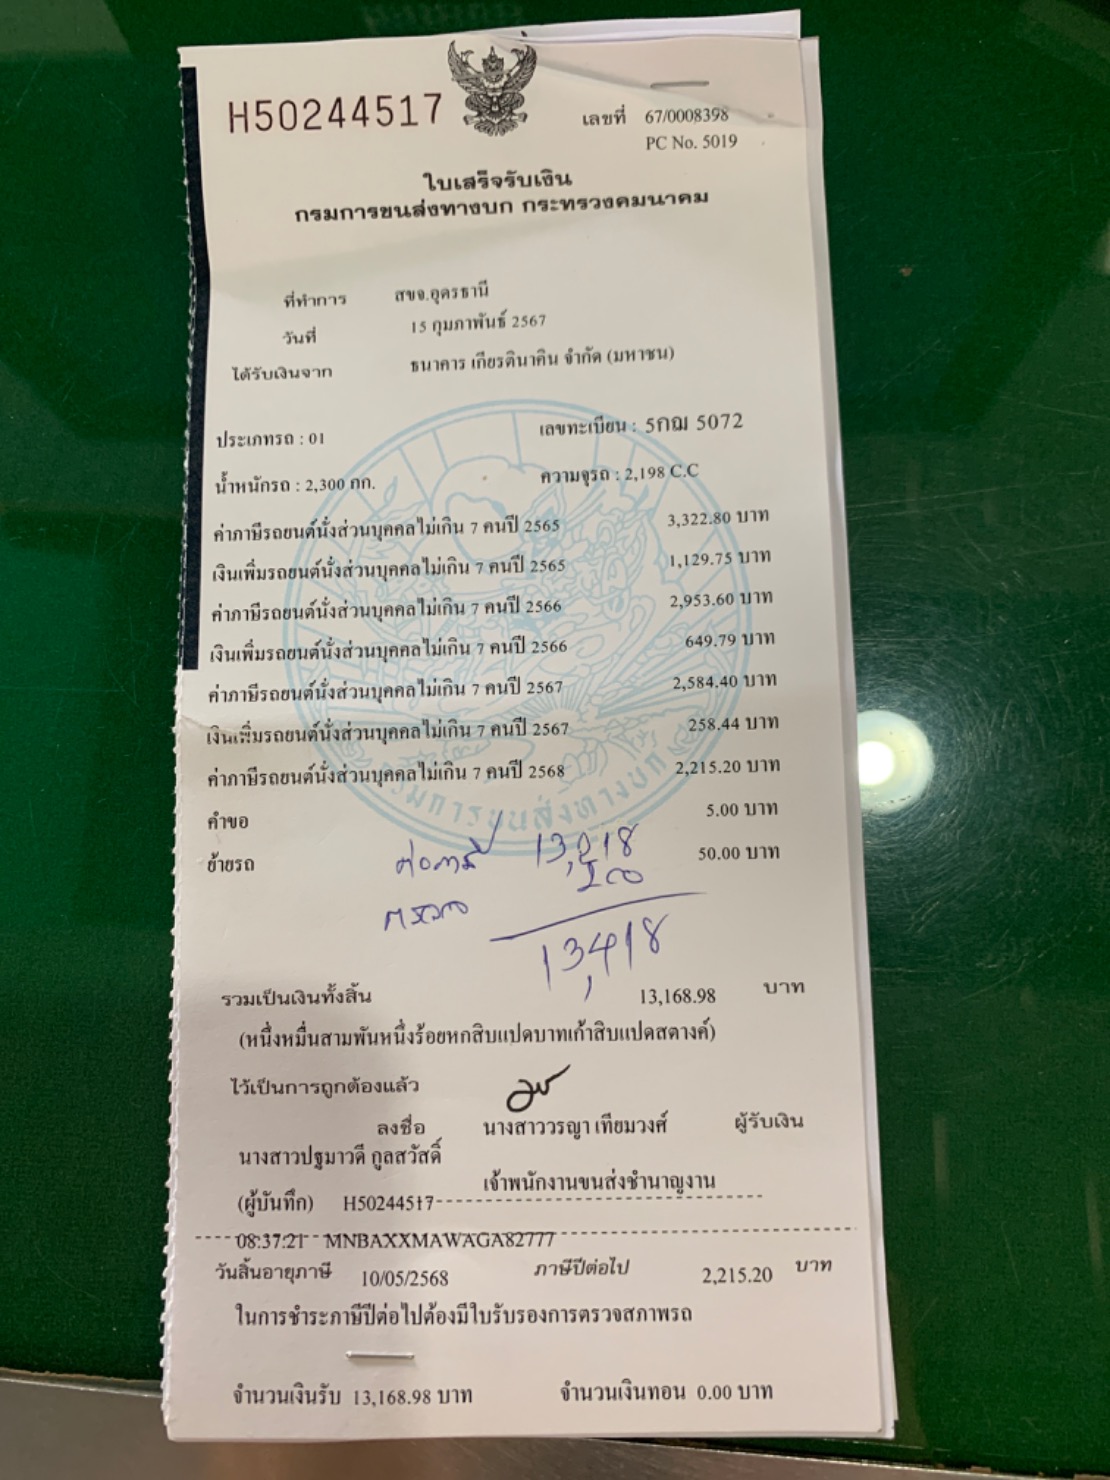 H50244517
เลขที่ 67/0008398
PC No. 5019
ใบเสร็จรับเงิน
กรมการขนส่งทางบก กระทรวงคมนาคม
ที่ทำการ สขจ.อุดรธานี
วันที่ 15 กุมภาพันธ์ 2567
ได้รับเงินจาก ธนาคาร เกียรตินาคิน จำกัด (มหาชน)
ประเภทรถ : 01 เลขทะเบียน : 5กฌ 5072
น้ำหนักรถ : 2,300 กก. ความจุรถ : 2,198 C.C
ค่าภาษีรถยนต์นั่งส่วนบุคคลไม่เกิน 7 คนปี 2565 3,322.80 บาท
เงินเพิ่มรถยนต์นั่งส่วนบุคคลไม่เกิน 7 คนปี 2565 1,129.75 บาท
ค่าภาษีรถยนต์นั่งส่วนบุคคลไม่เกิน 7 คนปี 2566 2,953.60 บาท
เงินเพิ่มรถยนต์นั่งส่วนบุคคลไม่เกิน 7 คนปี 2566 649.79 บาท
ค่าภาษีรถยนต์นั่งส่วนบุคคลไม่เกิน 7 คนปี 2567 2,584.40 บาท
เงินเพิ่มรถยนต์นั่งส่วนบุคคลไม่เกิน 7 คนปี 2567 258.44 บาท
ค่าภาษีรถยนต์นั่งส่วนบุคคลไม่เกิน 7 คนปี 2568 2,215.20 บาท
กรมการขนส่งทางบก
คำขอ 5.00 บาท
ย้ายรถ 50.00 บาท
ต่อภาษี 13,218
ตรวจ 200
13,418
รวมเป็นเงินทั้งสิ้น 13,168.98 บาท
(หนึ่งหมื่นสามพันหนึ่งร้อยหกสิบแปดบาทเก้าสิบแปดสตางค์)
ไว้เป็นการถูกต้องแล้ว
ลงชื่อ นางสาววรญา เทียมวงศ์ ผู้รับเงิน
นางสาวปฐมาวดี กูลสวัสดิ์
เจ้าพนักงานขนส่งชำนาญงาน
(ผู้บันทึก) H50244517
08:37:21 MNBAXXMAWAGA82777
วันสิ้นอายุภาษี 10/05/2568 ภาษีปีต่อไป 2,215.20 บาท
ในการชำระภาษีปีต่อไปต้องมีใบรับรองการตรวจสภาพรถ
จำนวนเงินรับ 13,168.98 บาท จำนวนเงินทอน 0.00 บาท